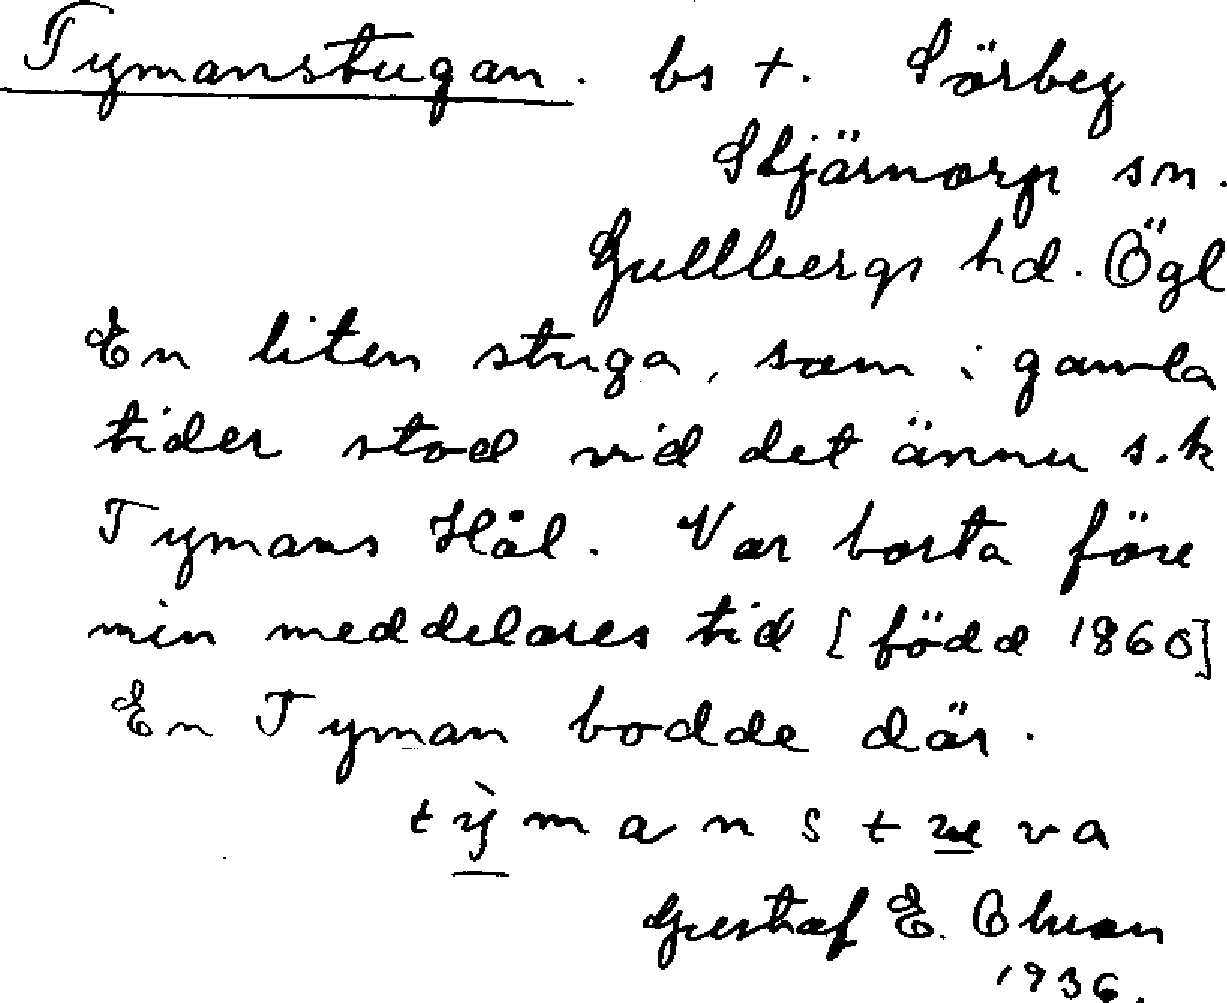 Tymanstugan. bs +. Sörby
Stjärnorp sn.
Gullbergs hd. Ögl
En liten stuga, som i gamla
tider stod vid det ännu s.k
Tymans Hål. Var borta före
min meddelares tid [född 1860]
En Tyman bodde där.
tỳmanstuva
Gustaf E. Ohman
1936.